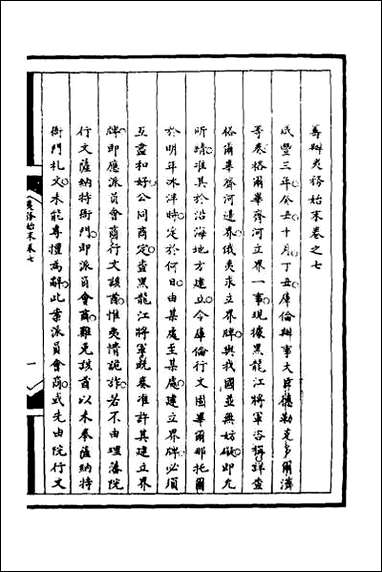 籌辦夷務始末卷之七
咸豐三年癸丑十月丁丑庫倫辦事大臣德勒克多爾濟
等奏格爾畢齊河立界一事現據黑龍江將軍咨稱詳查
格爾畢齊河邊界俄夷求立界牌與我國並無妨礙即允
所請准其於沿海地方建立今庫倫行文固畢爾那托爾
於明年冰泮時定於何日由某處至某處建立界牌必須
互盡和好公同商定查黑龍江將軍既奏准許其建立界
牌即應派員會商行文該酋惟夷情詭詐若不由理藩院
行文薩納特衙門即派員會商難免該酋以未奉薩納特
衙門札文未能專擅為辭此案派員會商或先由院行文
夷務始末卷七
一